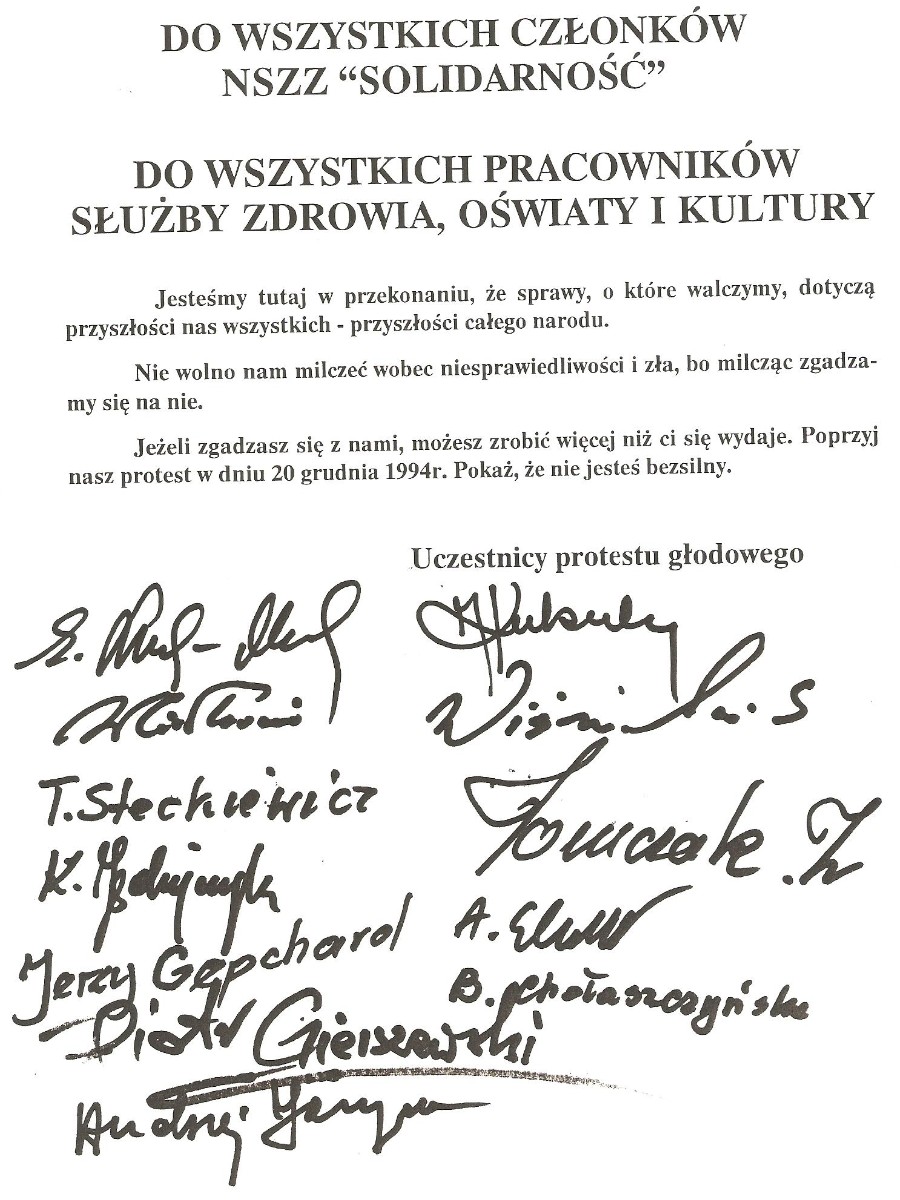 DO WSZYSTKICH CZŁONKÓW
NSZZ “SOLIDARNOŚĆ”
DO WSZYSTKICH PRACOWNIKÓW
SŁUŻBY ZDROWIA, OŚWIATY I KULTURY
Jesteśmy tutaj w przekonaniu, że sprawy, o które walczymy, dotyczą
przyszłości nas wszystkich - przyszłości całego narodu.
Nie wolno nam milczeć wobec niesprawiedliwości i zła, bo milcząc zgadza-
my się na nie.
Jeżeli zgadzasz się z nami, możesz zrobić więcej niż ci się wydaje. Poprzyj
nasz protest w dniu 20 grudnia 1994r. Pokaż, że nie jesteś bezsilny.
Uczestnicy protestu głodowego
T. Steckiewicz
Tomczak. Z
K.
A.
Jerzy Gępchard
B.
Piotr Gierszewski
Andrzej